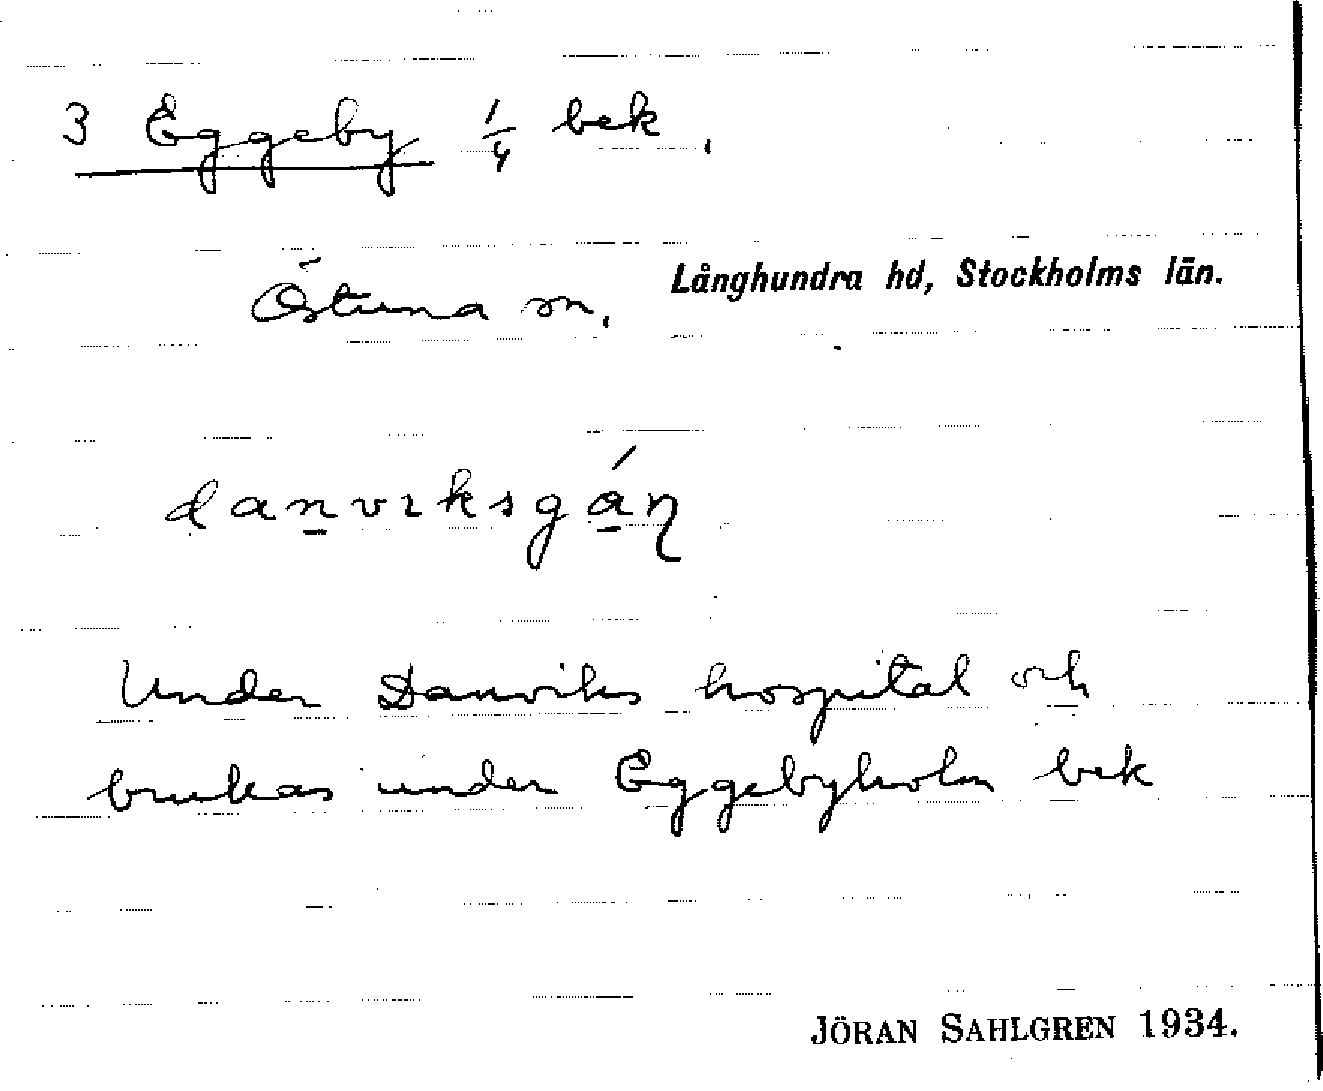 3 Eggeby 1/4 bek.
Östuna sn. Långhundra hd, Stockholms län.
dan̲vıksgá̲ɳ
Under Danviks hospital och
brukas under Eggebyholm bek
JÖRAN SAHLGREN 1934.